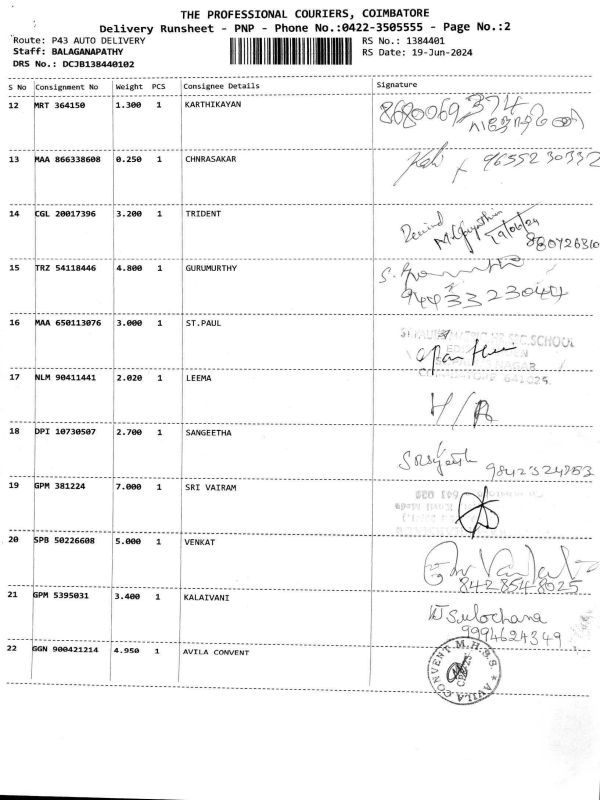 THE PROFESSIONAL COURIERS, COIMBATORE
Delivery Runsheet - PNP - Phone No.:0422-3505555 - Page No.:2
Route: P43 AUTO DELIVERY RS No.: 1384401
Staff: BALAGANAPATHY RS Date: 19-Jun-2024
DRS No.: DCJB138440102
S No Consignment No Weight PCS Consignee Details Signature
12 MRT 364150 1.300 1 KARTHIKAYAN 8680069374
13 MAA 866338608 0.250 1 CHNRASAKAR 9655230332
14 CGL 20017396 3.200 1 TRIDENT
19/06/24
880726310
15 TRZ 54118446 4.800 1 GURUMURTHY
9443323044
16 MAA 650113076 3.000 1 ST.PAUL SCHOOL
17 NLM 90411441 2.020 1 LEEMA H/R
18 DPI 10730507 2.700 1 SANGEETHA
9842324853
19 GPM 381224 7.000 1 SRI VAIRAM
20 SPB 50226608 5.000 1 VENKAT
8428548025
21 GPM 5395031 3.400 1 KALAIVANI Sulochana
9994624349
22 GGN 900421214 4.950 1 AVILA CONVENT AVILA CONVENT M.H.S.S.